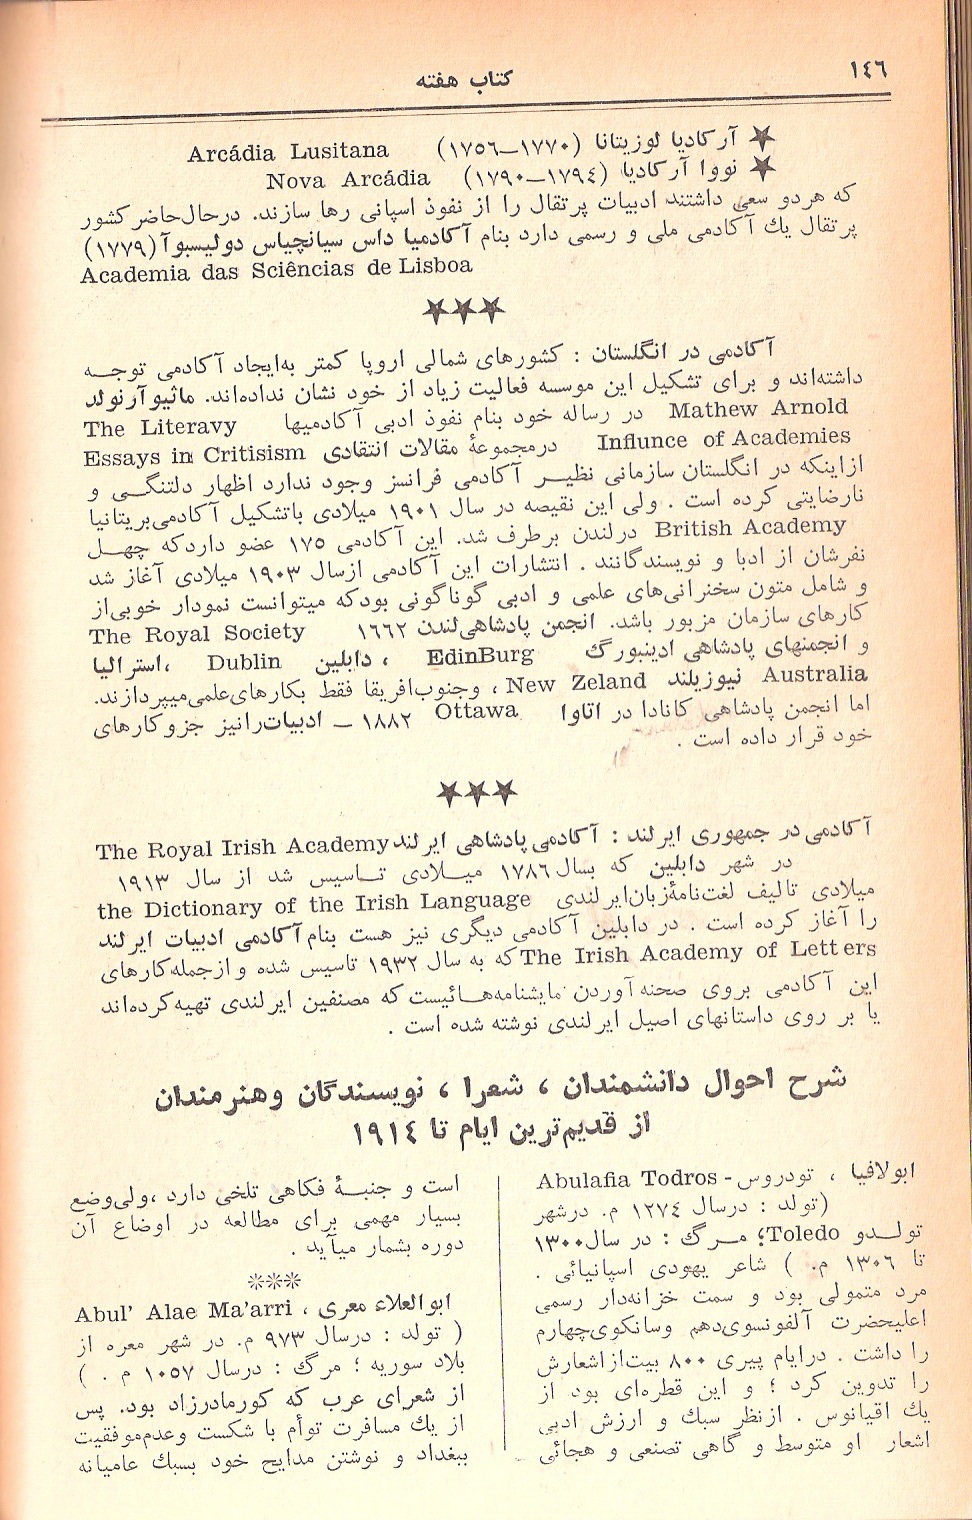 ١٤٦
کتاب هفته
★ آرکادیا لوزیتانا (١٧٧٠–١٧٥٦) Arcádia Lusitana
★ نووا آرکادیا (١٧٩٤–١٧٩٠) Nova Arcádia
که هردو سعی داشتند ادبیات پرتقال را از نفوذ اسپانی رها سازند. درحال‌حاضر کشور
پرتقال یك آکادمی ملی و رسمی دارد بنام آکادمیا داس سیانچیاس دولیسبوآ (١٧٧٩)
Academia das Sciências de Lisboa
★★★
آکادمی در انگلستان : کشورهای شمالی اروپا کمتر به‌ایجاد آکادمی توجـه
داشته‌اند و برای تشکیل این موسسه فعالیت زیاد از خود نشان نداده‌اند. ماثیوآرنولد
Mathew Arnold در رساله خود بنام نفوذ ادبی آکادمیها The Literavy
Influnce of Academies درمجموعهٔ مقالات انتقادی Essays in Critisism
ازاینکه در انگلستان سازمانی نظیـر آکادمی فرانسز وجود ندارد اظهار دلتنگـی و
نارضایتی کرده است . ولی این نقیصه در سال ١٩٠١ میلادی باتشکیل آکادمی‌بریتانیا
British Academy درلندن برطرف شد. این آکادمی ١٧٥ عضو داردکه چهـل
نفرشان از ادبا و نویسندگانند . انتشارات این آکادمی ازسال ١٩٠٣ میلادی آغاز شد
و شامل متون سخنرانی‌های علمی و ادبی گوناگونی بودکه میتوانست نمودار خوبی‌از
کارهای سازمان مزبور باشد. انجمن پادشاهی‌لندن ١٦٦٢ The Royal Society
و انجمنهای پادشاهی ادینبورگ EdinBurg ، دابلین Dublin ،استرالیا
Australia نیوزیلند New Zeland ، وجنوب‌افریقا فقط بکارهای‌علمی‌میپردازند.
اما انجمن پادشاهی کانادا در اتاوا Ottawa ١٨٨٢ – ادبیات‌رانیز جزوکارهای
خود قرار داده است .
★★★
آکادمی در جمهوری ایرلند : آکادمی پادشاهی ایرلند The Royal Irish Academy
در شهر دابلین که بسال ١٧٨٦ میـلادی تـاسیس شد از سال ١٩١٣
میلادی تالیف لغت‌نامهٔ‌زبان‌ایرلندی the Dictionary of the Irish Language
را آغاز کرده است . در دابلین آکادمی دیگری نیز هست بنام آکادمی ادبیات ایرلند
The Irish Academy of Letters که به سال ١٩٣٢ تاسیس شده و ازجمله‌کارهای
این آکادمی بروی صحنه آوردن نمایشنامه‌هـائیست که مصنفین ایرلندی تهیه‌کرده‌اند
یا بر روی داستانهای اصیل ایرلندی نوشته شده است .
شرح احوال دانشمندان ، شعرا ، نویسندگان وهنرمندان
از قدیم‌ترین ایام تا ١٩١٤
ابولافیا ، تودروس - Abulafia Todros
(تولد : درسال ١٢٧٤ م. درشهر
تولـدو Toledo؛ مـرگ : در سال١٣٠٠
تا ١٣٠٦ م. ) شاعر یهودی اسپانیائی .
مرد متمولی بود و سمت خزانه‌دار رسمی
اعلیحضرت آلفونسوی‌دهم وسانکوی‌چهارم
را داشت . درایام پیری ٨٠٠ بیت‌ازاشعارش
را تدوین کرد ؛ و این قطره‌ای بود از
یك اقیانوس . ازنظر سبك و ارزش ادبی
اشعار او متوسط و گاهی تصنعی و هجائی
است و جنبـهٔ فکاهی تلخی دارد ،ولی‌وضع
بسیار مهمی برای مطالعه در اوضاع آن
دوره بشمار میآید .
※※※
ابوالعلاء معری ، Abul’ Alae Ma’arri
( تولد : درسال ٩٧٣ م. در شهر معره از
بلاد سوریه ؛ مرگ : درسال ١٠٥٧ م . )
از شعرای عرب که کورمادرزاد بود. پس
از یك مسافرت توأم با شکست وعدم‌موفقیت
ببغداد و نوشتن مدایح خود بسبك عامیانه